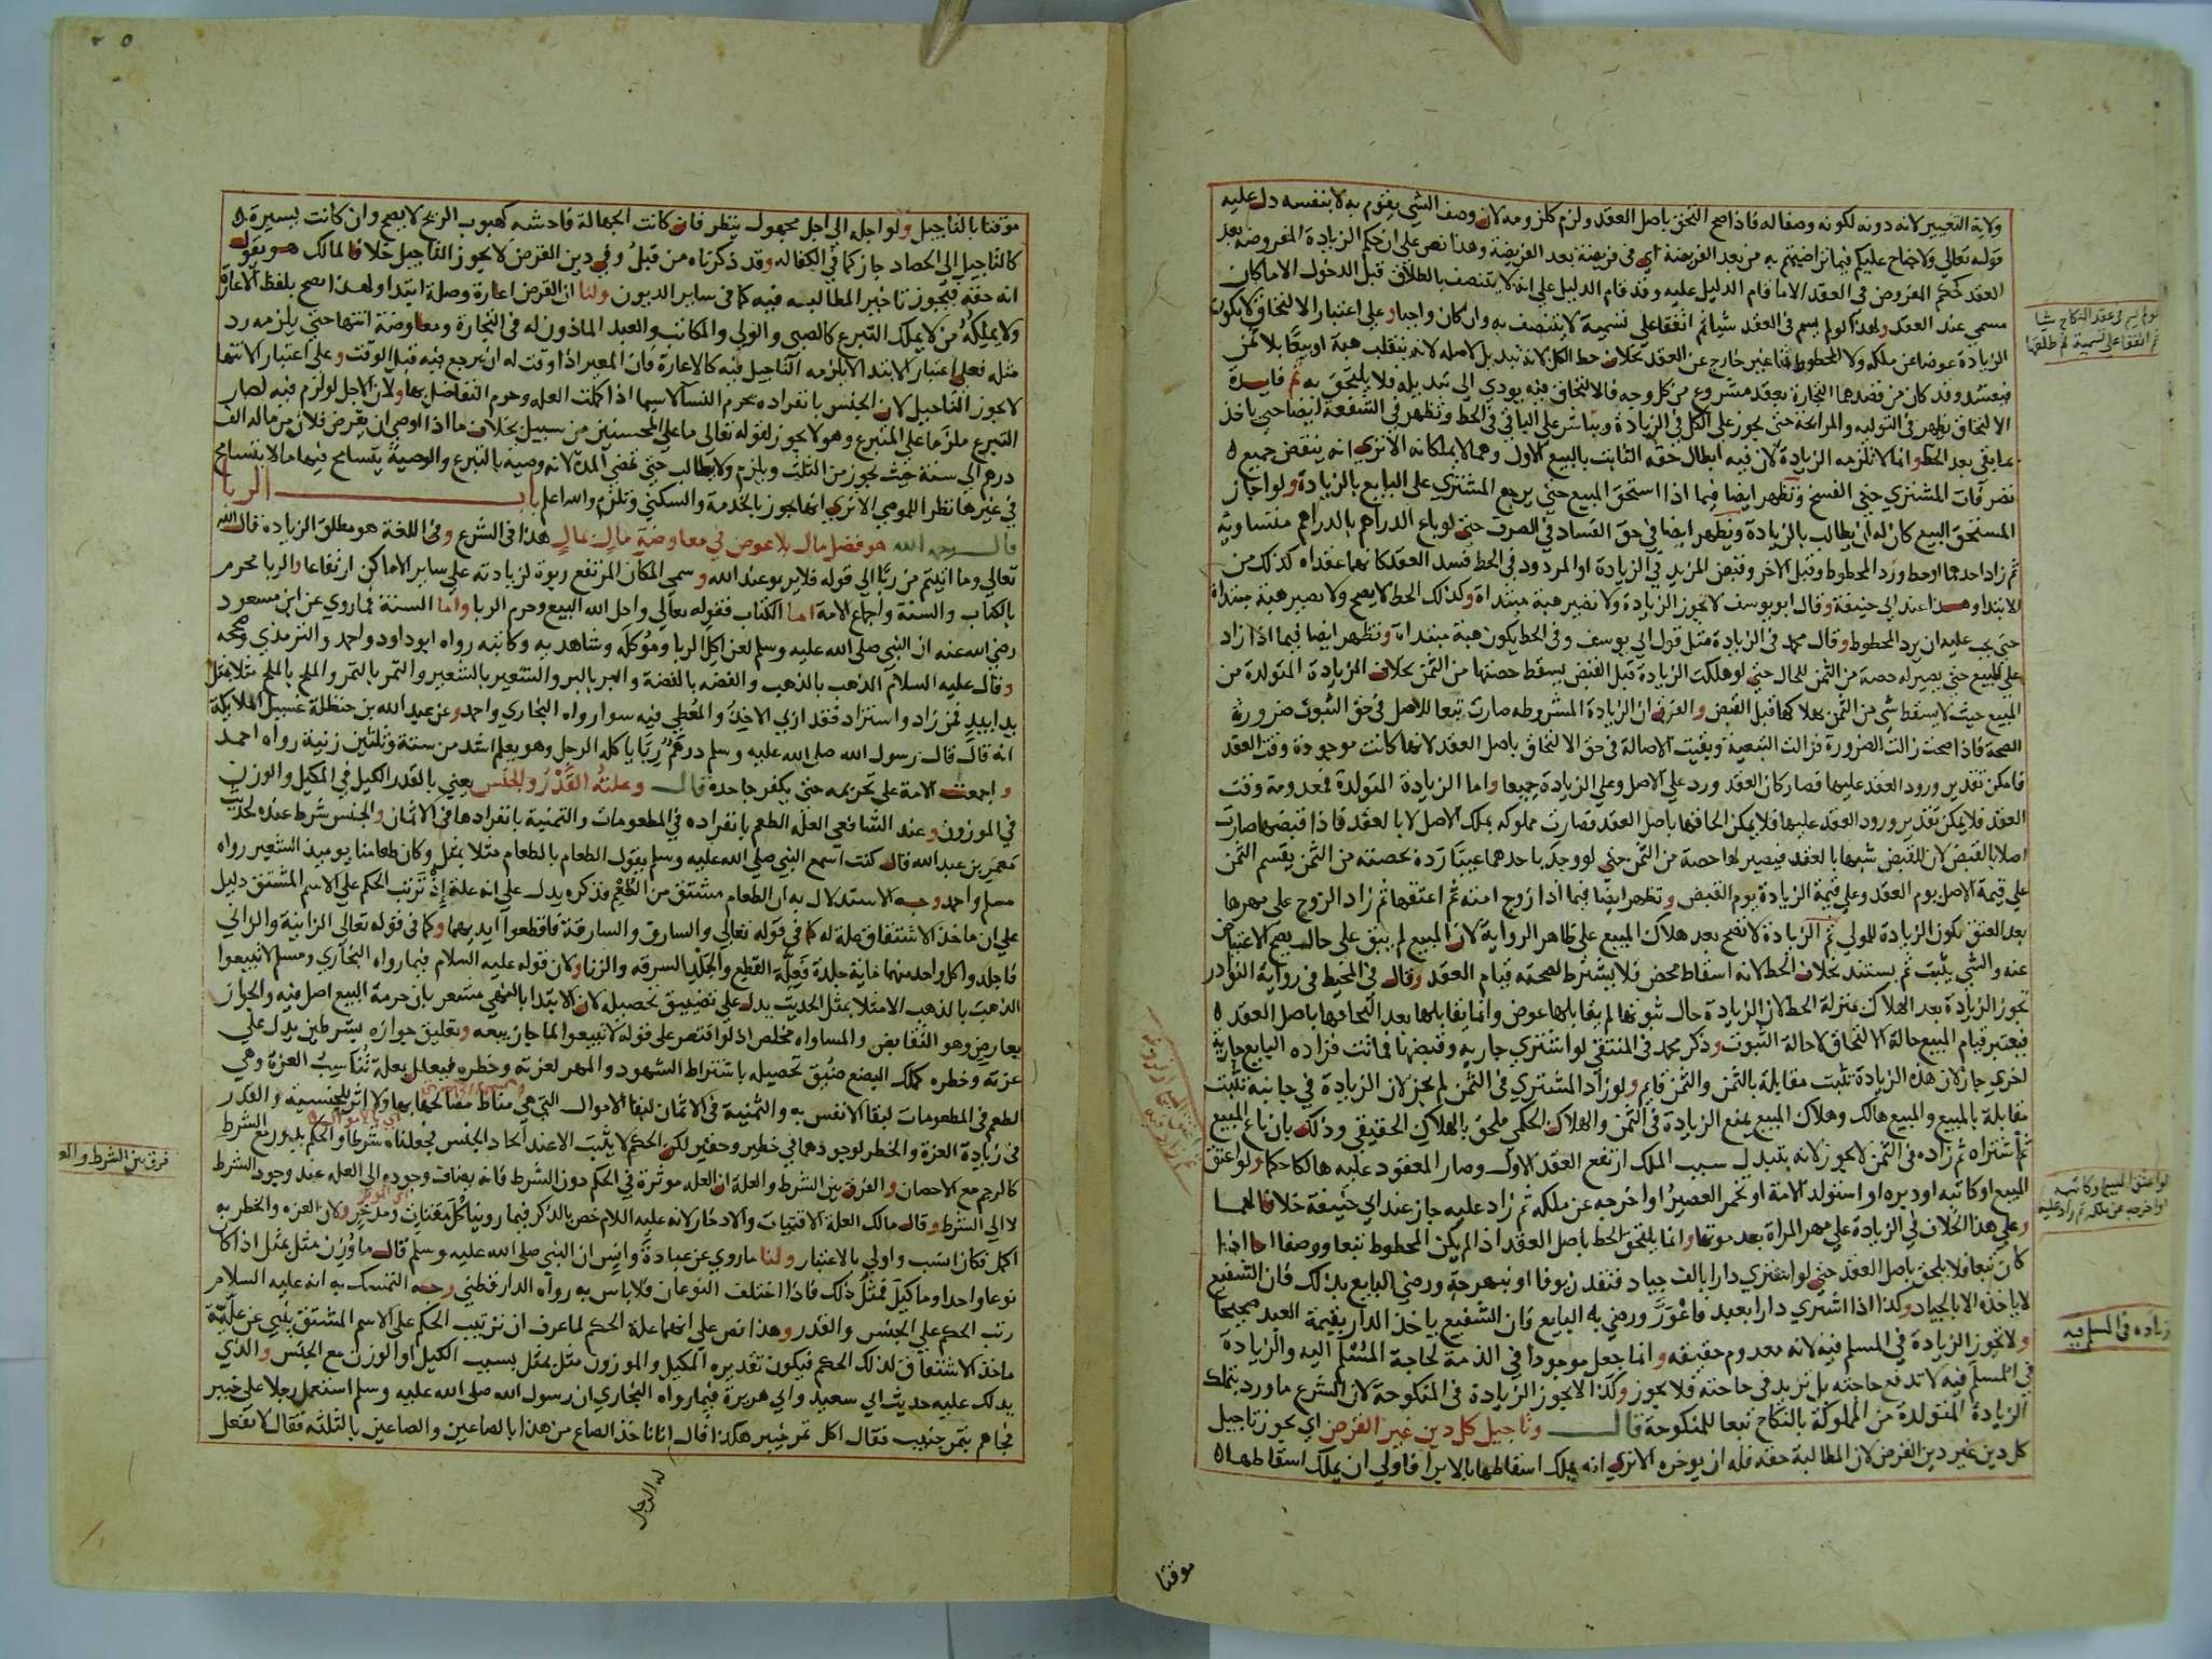 ولاية التغيير لانه دونه لكونه وصفا له فاذا صح التحق باصل العقد ولزم كلزومه لان وصف الشي يقوم به لا بنفسه دل عليه
قوله تعالي ولا جناح عليكم فيما تراضيتم به من بعد الفريضة اي في فريضة بعد الفريضة وهذا نص علي ان حكم الزيادة المفروضة بعد
العقد كحكم المفروض في العقد الا ما قام الدليل عليه وقد قام الدليل علي انه لا يتنصف بالطلاق قبل الدخول الا ما كان
مسمي عند العقد ولهذا لو لم يسم في العقد شيا ثم اتفقا علي تسمية لا يتنصف به وان كان واجبا وعلي اعتبار الالتحاق لا يكون
الزيادة عوضا عن ملكه ولا المحطوط ثمنا غير خارج عن العقد بخلاف حط الكل لانه تبديل لاصله لانه ينقلب هبة او بيعا بلا ثمن
فيفسد وقد كان من قصدهما التجارة بعقد مشروع من كل وجه فالالتحاق فيه يودي الي تبديله فلا يلتحق به ثم فايدة
الالتحاق يظهر في التولية والمرابحة حتي يجوز علي الكل في الزيادة ويباشر علي الباقي في الحط وتظهر في الشفعة ايضا حتي ياخذ
بما بقي بعد الحط وانما لا تلزمه الزيادة لان فيه ابطال حقه الثابت بالبيع الاول وهما لا يملكانه الا تري انه ينتقض جميع
تصرفات المشتري حتي الفسخ وتظهر ايضا فيما اذا استحق المبيع حتي يرجع المشتري علي البايع بالزيادة ولو اجاز
المستحق البيع كان له ان يطالب بالزيادة وتظهر ايضا في حق الفساد في الصرف حتي لو باع الدراهم بالدراهم متساوية
ثم زاد احدهما او حط ورد المحطوط وقبل الاخر وقبض المزيد في الزيادة او المردود في الحط فسد العقد كانهما عقداه كذلك من
الابتدا وهذا عند ابي حنيفة وقال ابو يوسف لا يجوز الزيادة ولا تصير هبة مبتداة وكذلك الحط لا يصح ولا يصير هبة مبتداة
حتي يجب عليه ان يرد المحطوط وقال محمد في الزيادة مثل قول ابي يوسف وفي الحط يكون هبة مبتداة وتظهر ايضا فيما اذا زاد
علي المبيع حتي يصير له حصة من الثمن للحال حتي لو هلكت الزيادة قبل القبض يسقط حصتها من الثمن بخلاف الزيادة المتولدة من
المبيع حيث لا يسقط شي من الثمن بهلاكها قبل القبض والفرق ان الزيادة المشروطه صارت تبعا للاصل في حق الثبوت ضرورة
الصحة فاذا صحت زالت الضرورة فزالت التبعية وبقيت الاصالة في حق الالتحاق باصل العقد لانها كانت موجودة وقت العقد
فامكن تقدير ورود العقد عليهما فصار كان العقد ورد علي الاصل وعلي الزيادة جميعا واما الزيادة المتولدة فمعدومة وقت
العقد فلا يمكن تقدير ورود العقد عليها فلا يمكن الحاقها باصل العقد فصارت مملوكه بملك الاصل لا بالعقد فاذا قبضهما صارت
اصلا بالقبض لان للقبض شبها بالعقد فيصير لها حصة من الثمن حتي لو وجد باحدهما عيبا رده بحصته من الثمن يقسم الثمن
علي قيمة الاصل يوم العقد وعلي قيمة الزيادة يوم القبض وتظهر ايضا فيما اذا زوج امته ثم اعتقها ثم زاد الزوج علي مهرها
بعد العتق تكون الزيادة للمولي ثم الزيادة لا تصح بعد هلاك المبيع علي ظاهر الرواية لان المبيع لم يبق علي حالة يصح الاعتياض
عنه والشي يثبت ثم يستند بخلاف الحط لانه اسقاط محض فلا يشترط لصحته قيام العقد وقال في المحيط في رواية النوادر
تجوز الزيادة بعد الهلاك بمنزلة الحط لان الزيادة حال ثبوتها لم يقابلها عوض وانما يقابلها بعد التحاقها باصل العقد
فيعتبر قيام المبيع حالة الالتحاق لا حالة الثبوت وذكر محمد في المنتقي لو اشتري جارية وقبضها فماتت فزاده البايع جارية
اخري جاز لان هذه الزيادة تثبت مقابلة بالثمن والثمن قايم ولو زاد المشتري في الثمن لم يجز لان الزيادة في جانبه تثبت
مقابلة بالمبيع والمبيع هالك وهلاك المبيع يمنع الزيادة في الثمن والهلاك الحكمي ملحق بالهلاك الحقيقي وذلك بان باع المبيع
ثم اشتراه ثم زاده في الثمن لا يجوز لانه بتبدل سبب الملك ارتفع العقد الاول وصار المعقود عليه هالكا حكما ولو اعتق
المبيع او كاتبه او دبره او استولد الامة او تخمر العصير او اخرجه عن ملكه ثم زاد عليه جاز عند ابي حنيفة خلافا لهما
وعلي هذا الخلاف في الزيادة علي مهر المراة بعد موتها وانما يلتحق الحط باصل العقد اذا لم يكن المحطوط تبعا ووصفا اما اذا
كان تبعا فلا يلحق باصل العقد حتي لو اشتري دارا بالف جياد فنقد زيوفا او نبهرجة ورضي البايع بذلك فان الشفيع
لا ياخذه الا بالجياد وكذا اذا اشتري دارا بعبد فاعور ورضي به البايع فان الشفيع ياخذ الدار بقيمة العبد صحيحا
ولا تجوز الزيادة في المسلم فيه لانه معدوم حقيقه وانما جعل موجودا في الذمة لحاجة المسلم اليه والزيادة
في المسلم فيه لا تدفع حاجته بل تزيد في حاجته فلا يجوز وكذا لا يجوز الزيادة في المنكوحة لان الشرع ما ورد بتملك
الزيادة المتولدة من المملوكة بالنكاح تبعا للمنكوحة قال وتاجيل كل دين غير القرض اي يجوز تاجيل
كل دين غير دين القرض لان المطالبة حقه فله ان يوخره الا تري انه يملك اسقاطها بالابرا فاولي ان يملك اسقاطها
لو لم يسم في عقد النكاح شيا
ثم اتفقا علي تسمية ثم طلقها
لو اعتق المبيع او كاتبه
او اخرجه عن ملكه ثم زاد عليه
زياده في المسلم فيه
موقتا
موقتا بالتاجيل ولو اجله الي اجل مجهول ينظر فان كانت الجهالة فاحشه كهبوب الريح لا يصح وان كانت يسيرة
كالتاجيل الي الحصاد جاز كما في الكفاله وقد ذكرناه من قبل وفي دين القرض لا يجوز التاجيل خلافا لمالك هو يقول
انه حقه فيجوز تاخير المطالبه فيه كما في ساير الديون ولنا ان القرض اعارة وصلة ابتدا ولهذا يصح بلفظ الاعارة
ولا يملكه من لا يملك التبرع كالصبي والولي والمكاتب والعبد الماذون له في التجارة ومعاوضة انتها حتي يلزمه رد
مثله فعلي اعتبار الابتدا لا يلزمه التاجيل فيه كالاعارة فان المعير اذا وقت له ان يرجع فيه قبل الوقت وعلي اعتبار الانتها
لا يجوز التاجيل لان الجنس بانفراده يحرم النسا لا سيما اذا كملت العله وحرم التفاضل بها ولان الاجل لو لزم فيه لصار
التبرع ملزما علي المتبرع وهو لا يجوز لقوله تعالي ما علي المحسنين من سبيل بخلاف ما اذا اوصي ان يقرض فلان من ماله الف
درهم الي سنة حيث يجوز من الثلث ويلزم ولا يطالب حتي تمضي المدة لانه وصية بالتبرع والوصية يتسامح فيها ما لا يتسامح
في غيرها نظرا للموصي الا تري انها تجوز بالخدمة والسكني وتلزم والله اعلم باب الربا
قال رحمه الله هو فضل مال بلا عوض في معاوضة مال بمال هذا في الشرع وفي اللغة هو مطلق الزيادة قال الله
تعالي وما اتيتم من ربا الي قوله فلا يربو عند الله وسمي المكان المرتفع ربوة لزيادته علي ساير الاماكن ارتفاعا والربا محرم
بالكتاب والسنة واجماع الامة اما الكتاب فقوله تعالي واحل الله البيع وحرم الربا واما السنة فما روي عن ابن مسعود
رضي الله عنه ان النبي صلي الله عليه وسلم لعن اكل الربا وموكله وشاهديه وكاتبه رواه ابو داود واحمد والترمذي وصححه
وقال عليه السلام الذهب بالذهب والفضه بالفضة والبر بالبر والشعير بالشعير والتمر بالتمر والملح بالملح مثلا بمثل
يدا بيد فمن زاد واستزاد فقد اربي الاخذ والمعطي فيه سوا رواه البخاري واحمد وعن عبد الله بن حنظلة غسيل الملايكة
انه قال قال رسول الله صلي الله عليه وسلم درهم ربا ياكله الرجل وهو يعلم اشد من ستة وثلثين زنية رواه احمد
واجمعت الامة علي تحريمه حتي يكفر جاحده قال وعلته القدر والجنس يعني بالقدر الكيل في المكيل والوزن
في الموزون وعند الشافعي العله الطعم بانفراده في المطعومات والثمنية بانفرادها في الاثمان والجنس شرط عنده لحديث
معمر بن عبد الله قال كنت اسمع النبي صلي الله عليه وسلم يقول الطعام بالطعام مثلا بمثل وكان طعامنا يوميذ الشعير رواه
مسلم واحمد وجه الاستدلال به ان الطعام مشتق من الطعم فذكره يدل علي انه علة اذ ترتب الحكم علي الاسم المشتق دليل
علي ان ماخذ الاشتقاق علة له كما في قوله تعالي والسارق والسارقة فاقطعوا ايديهما وكما في قوله تعالي الزانية والزاني
فاجلدوا كل واحد منهما ماية جلدة فعلة القطع والجلد السرقه والزنا ولان قوله عليه السلام فيما رواه البخاري ومسلم لا تبيعوا
الذهب بالذهب الا مثلا بمثل الحديث يدل علي تضييق تحصيله لان الابتدا بالنهي مشعر بان حرمة البيع اصل فيه والجواز
يعارض وهو التقابض والمساواه مخلص اذ لو اقتصر علي قوله لا تبيعوا لما جاز بيعه وتعليق جوازه بشرطين يدل علي
عزته وخطره كملك البضع ضيق تحصيله باشتراط الشهود والمهر لعزته وخطره فيعلل بعلة تناسب العزة وهي
الطعم في المطعومات لبقا الانفس به والثمنية في الاثمان لبقا الاموال التي هي مناط مصالحها بها ولا اثر للجنسية والقدر
في زيادة العزة والخطر لوجودهما في خطير وحقير لكن الحكم لا يثبت الا عند اتحاد الجنس فجعلناه شرطا والحكم يدور مع الشرط
كالرجم مع الاحصان والفرق بين الشرط والعلة ان العله موثرة في الحكم دون الشرط فانه يضاف وجوده الي العله عند وجود الشرط
لا الي الشرط وقال مالك العلة الاقتيات والادخار لانه عليه السلام خص بالذكر فيما روينا كل مقتات ومدخر ولان العزه والخطر به
اكمل فكان انسب واولي بالاعتبار ولنا ما روي عن عبادة وانس ان النبي صلي الله عليه وسلم قال ما وزن مثل بمثل اذا كان
نوعا واحدا وما كيل فمثل ذلك فاذا اختلف النوعان فلا باس به رواه الدارقطني وجه التمسك به انه عليه السلام
رتب الحكم علي الجنس والقدر وهذا نص علي انهما علة الحكم لما عرف ان ترتيب الحكم علي الاسم المشتق ينبي عن علية
ماخذ الاشتقاق لذلك الحكم فيكون تقديره المكيل والموزون مثل بمثل بسبب الكيل او الوزن مع الجنس والذي
يدلك عليه حديث ابي سعيد وابي هريرة فيما رواه البخاري ان رسول الله صلي الله عليه وسلم استعمل رجلا علي خيبر
فجاهم بتمر جنيب فقال اكل تمر خيبر هكذا قال انا ناخذ الصاع من هذا بالصاعين والصاعين بالثلثه فقال لا تفعل
فرق بين الشرط والعلة